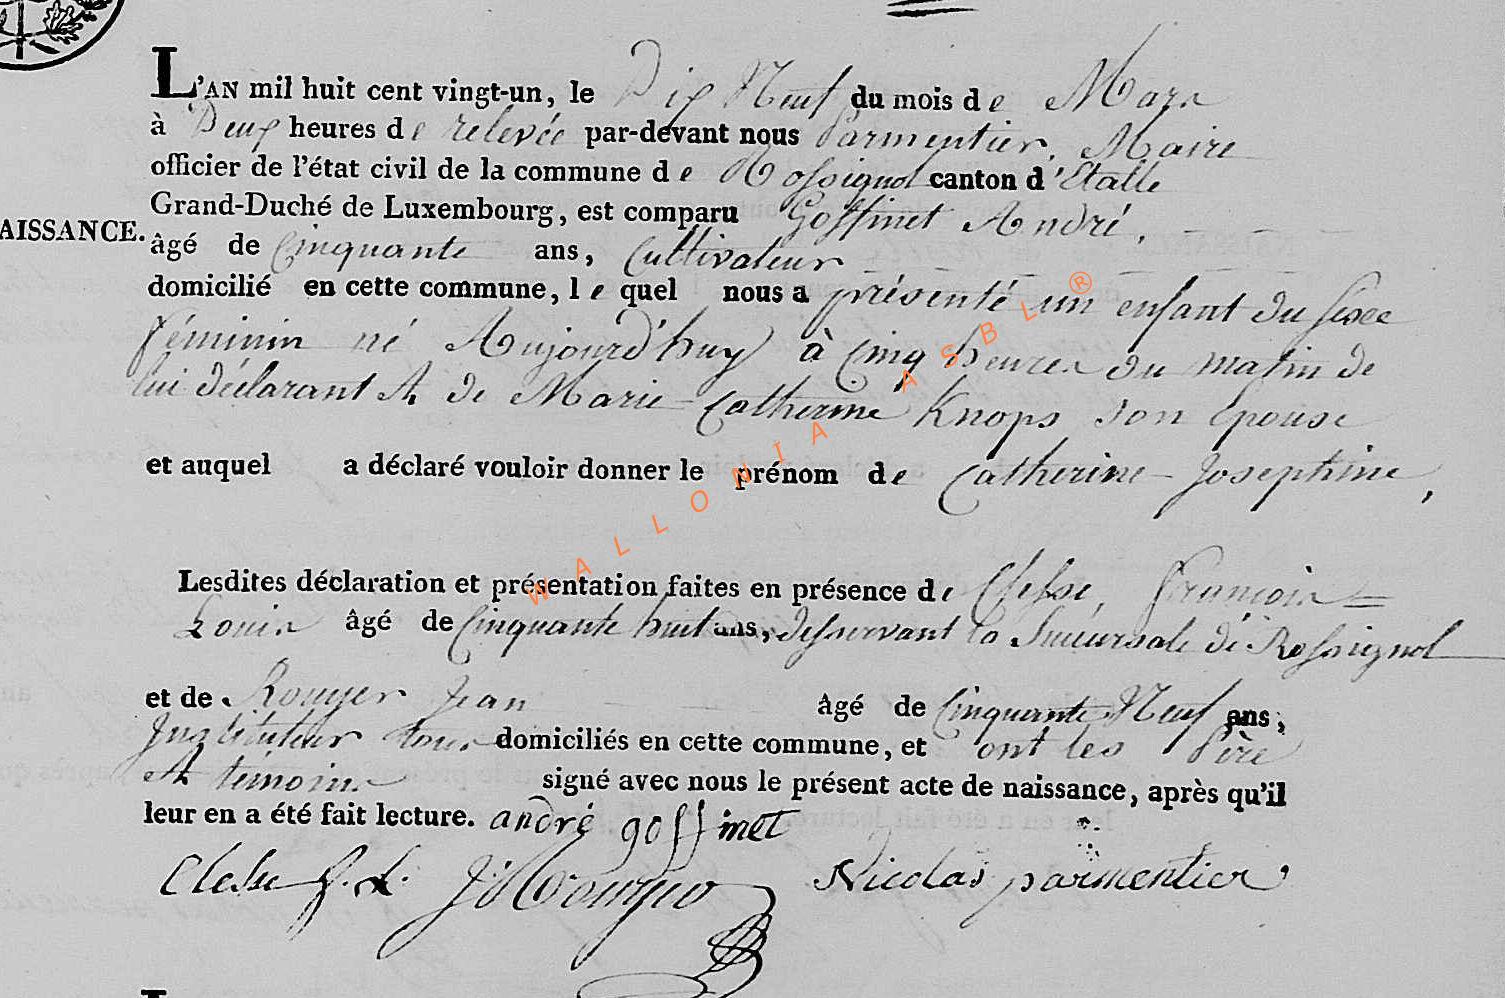 L'AN mil huit cent vingt-un, le Dix Neuf du mois de Mars
à Deux heures de relevée par-devant nous Parmentier, Maire
officier de l'état civil de la commune de Rossignol canton d'Etalle
Grand-Duché de Luxembourg, est comparu Goffinet André,
AISSANCE.
âgé de Cinquante ans, Cultivateur
domicilié en cette commune, le quel nous a présenté un enfant du sexe
féminin né Aujourd'huy à Cinq heures du matin de
lui déclarant et de Marie-Catherine Knops son Epouse
et auquel a déclaré vouloir donner le prénom de Catherine-Josephine,
Lesdites déclaration et présentation faites en présence de Clesse, François=
Louis âgé de Cinquante huit ans, desservant la Succursale de Rossignol
et de Rouyer Jean âgé de Cinquante Neuf ans,
Instituteur tous domiciliés en cette commune, et ont les Père
et temoins signé avec nous le présent acte de naissance, après qu'il
leur en a été fait lecture. andré goffinet
Clesse f. L. J: Rouyer Nicolas parmentier
WALLONIA ASBL ®